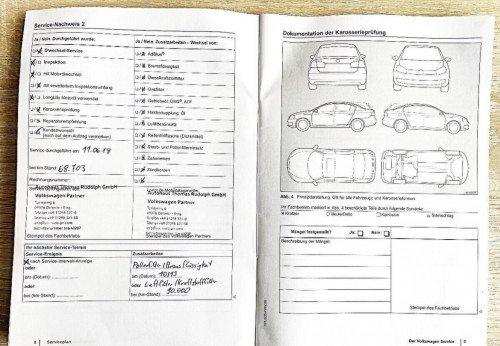 Service-Nachweis 2
Ja / Nein. Durchgeführt wurde:
Ölwechsel-Service
Inspektion
mit Motorölwechsel
mit erweitertem Inspektionsumfang
LongLife Motoröl verwendet
Karosserieprüfung
Reparaturempfehlung
Kundenwunsch
(auch auf dem Auftrag vermerken)
Service durchgeführt am: 11.06.18
bei km-Stand: 68.703
Rechnungsnummer:
Autohaus Thomas Rüddiph GmbH
Volkswagen Partner
Stempel des Fachbetriebs
Ja / Nein. Zusatzarbeiten – Wechsel von:
AdBlue
Bremsflüssigkeit
Dieselkraftstofffilter
Gasfilter
Haldexkupplung: Öl
Luftfiltereinsatz
Staub- und Pollenfiltereinsatz
Zahnriemen
Zündkerzen
GmbH
Volkswagen Partner
Stempel des Fachbetriebs
Ihr nächster Service-Termin
Service-Ereignis
nach Service-Intervall-Anzeige
oder
am (Datum):
oder
bei (km-Stand):
Zusatzarbeiten
Pollenfilter / Bremsflüssigkeit
am (Datum): 10/19
oder Luftfilter / Kraftstofffilter
bei (km-Stand): 90.000
Serviceplan
Dokumentation der Karosserieprüfung
Abb. 4 Prinzipdarstellung. Gilt für alle Fahrzeuge und Karosserieformen
Ihr Fachbetrieb markiert in Abb. 4 beschädigte Teile durch folgende Symbole:
Kratzer
Beule/Delle
Korrosion
Steinschlag
Mängel festgestellt?
Ja
Nein:
Beschreibung der Mängel:
Stempel des Fachbetriebs
Der Volkswagen Service